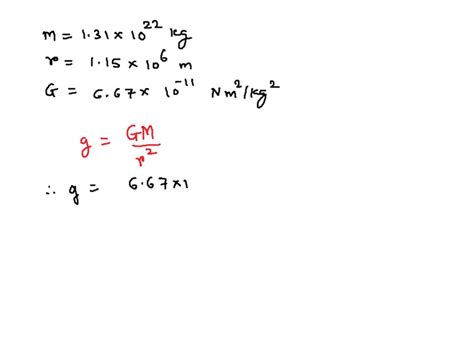 m = 1.31 × 10²² kg
r = 1.15 × 10⁶ m
G = 6.67 × 10⁻¹¹ Nm²/kg²
g = GM/r²
∴ g = 6.67×1